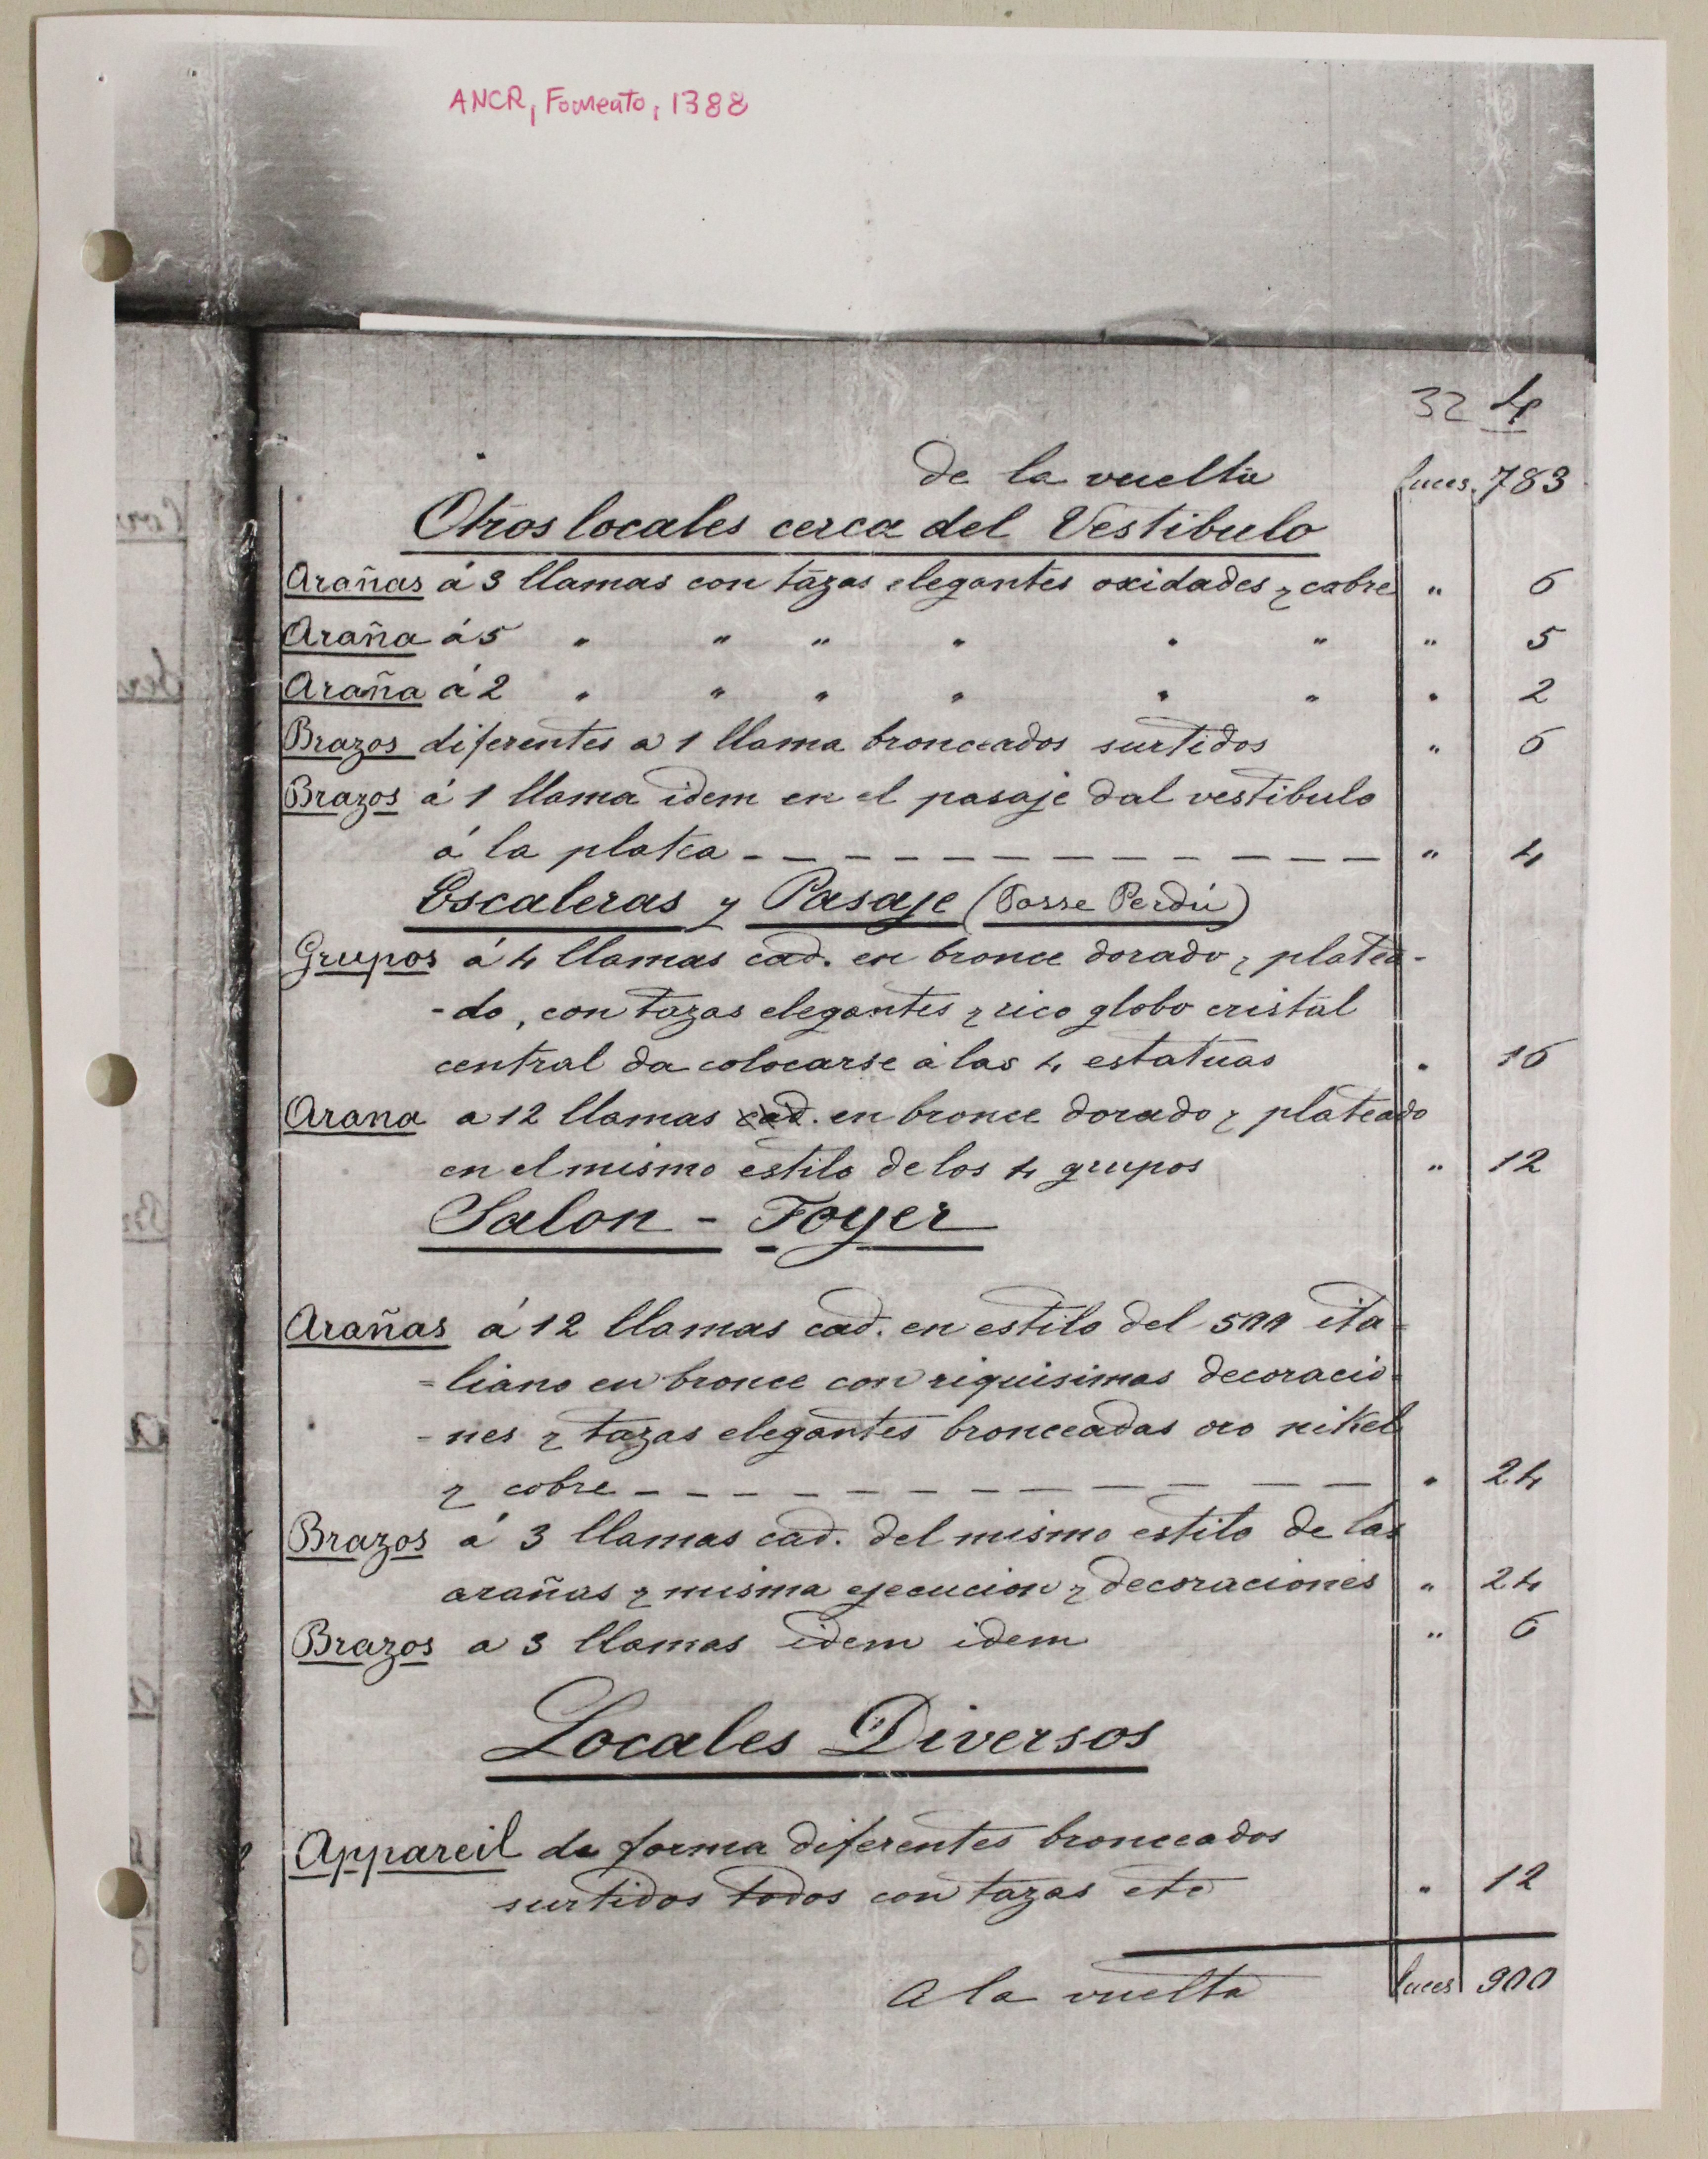 ANCR, Fomento, 1388
32 4
de la vuelta luces 783
Otros locales cerca del Vestibulo
Arañas á 3 llamas con tazas elegantes oxidades y cobre " 6
Araña á 5 " " " " " " " 5
Araña á 2 " " " " " " " 2
Brazos diferentes a 1 llama bronceados surtidos " 6
Brazos á 1 llama idem en el pasaje dal vestibulo
á la platea - - - - - - - - - - - - " 4
Escaleras y Pasaje (Posse Perdú)
Grupos á 4 llamas cad. en bronce dorado y platea-
-do, con tazas elegantes y rico globo cristal
central da colocarse á las 4 estatuas " 16
Arana a 12 llamas cad. en bronce dorado y plateado
en el mismo estilo de los 4 grupos " 12
Salon - Foyer
Arañas á 12 llamas cad. en estilo del 500 ita=
=liano en bronce con riquisimas decoracio=
-nes y tazas elegantes bronceadas oro nikel
y cobre - - - - - - - - - - - - - " 24
Brazos á 3 llamas cad. del mismo estilo de las
arañas y misma ejecucion y decoraciones " 24
Brazos a 3 llamas idem idem " 6
Locales Diversos
Appareil de forma diferentes bronceados
surtidos todos con tazas etc " 12
A la vuelta luces 900